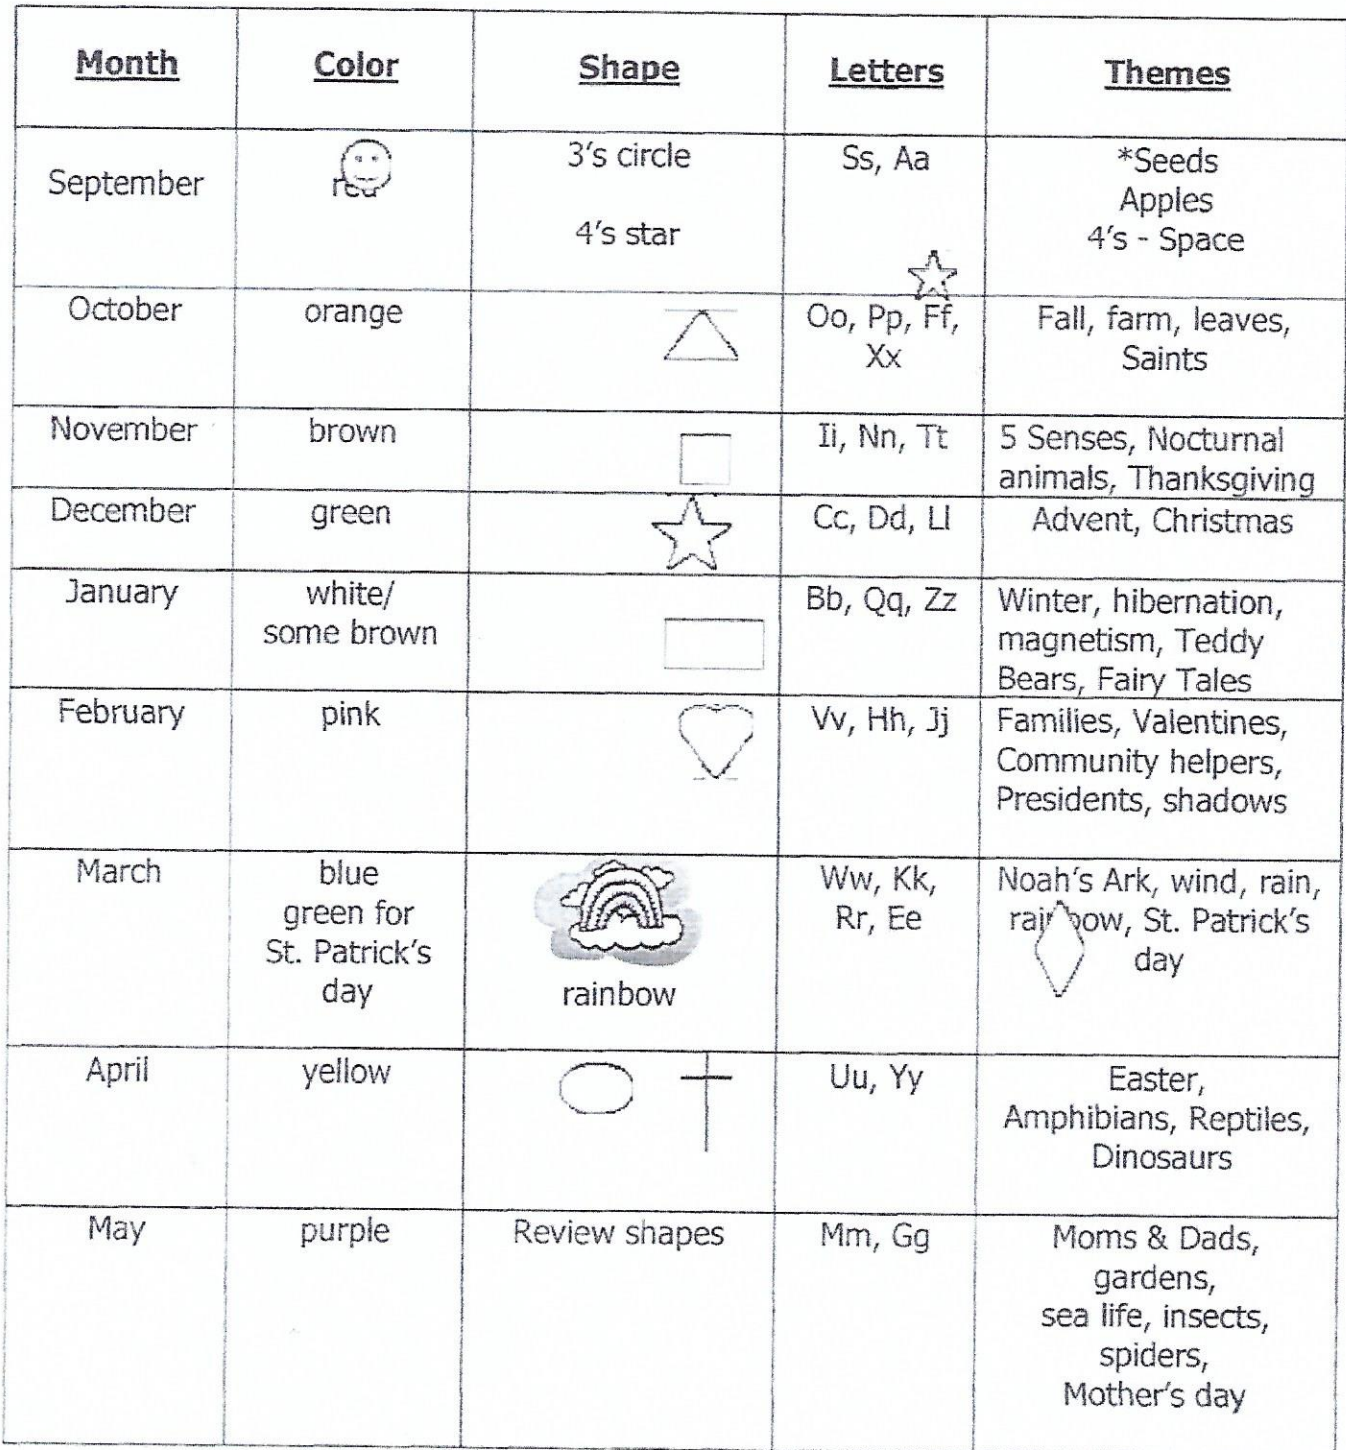 Month Color Shape Letters Themes
September red 3's circle Ss, Aa *Seeds
Apples
4's star 4's - Space
October orange Oo, Pp, Ff, Fall, farm, leaves,
Xx Saints
November brown Ii, Nn, Tt 5 Senses, Nocturnal
animals, Thanksgiving
December green Cc, Dd, Ll Advent, Christmas
January white/ Bb, Qq, Zz Winter, hibernation,
some brown magnetism, Teddy
Bears, Fairy Tales
February pink Vv, Hh, Jj Families, Valentines,
Community helpers,
Presidents, shadows
March blue Ww, Kk, Noah's Ark, wind, rain,
green for Rr, Ee rainbow, St. Patrick's
St. Patrick's day
day rainbow
April yellow Uu, Yy Easter,
Amphibians, Reptiles,
Dinosaurs
May purple Review shapes Mm, Gg Moms & Dads,
gardens,
sea life, insects,
spiders,
Mother's day